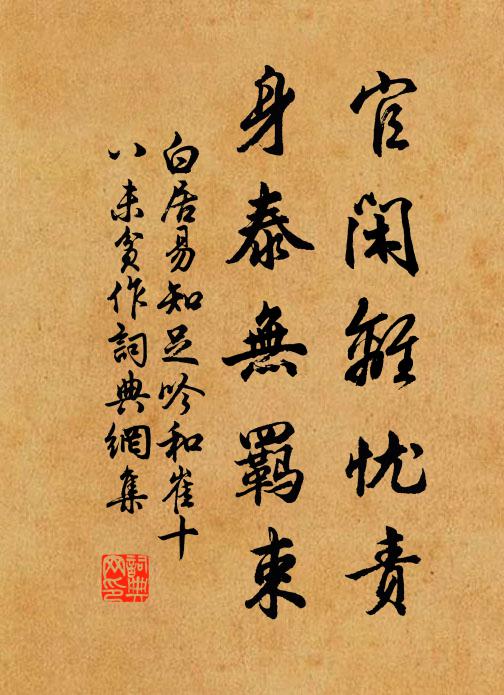 官闲離忧责
身泰無羁束
白居易知足吟和崔十
八未贫作詞典網集
詞典网印